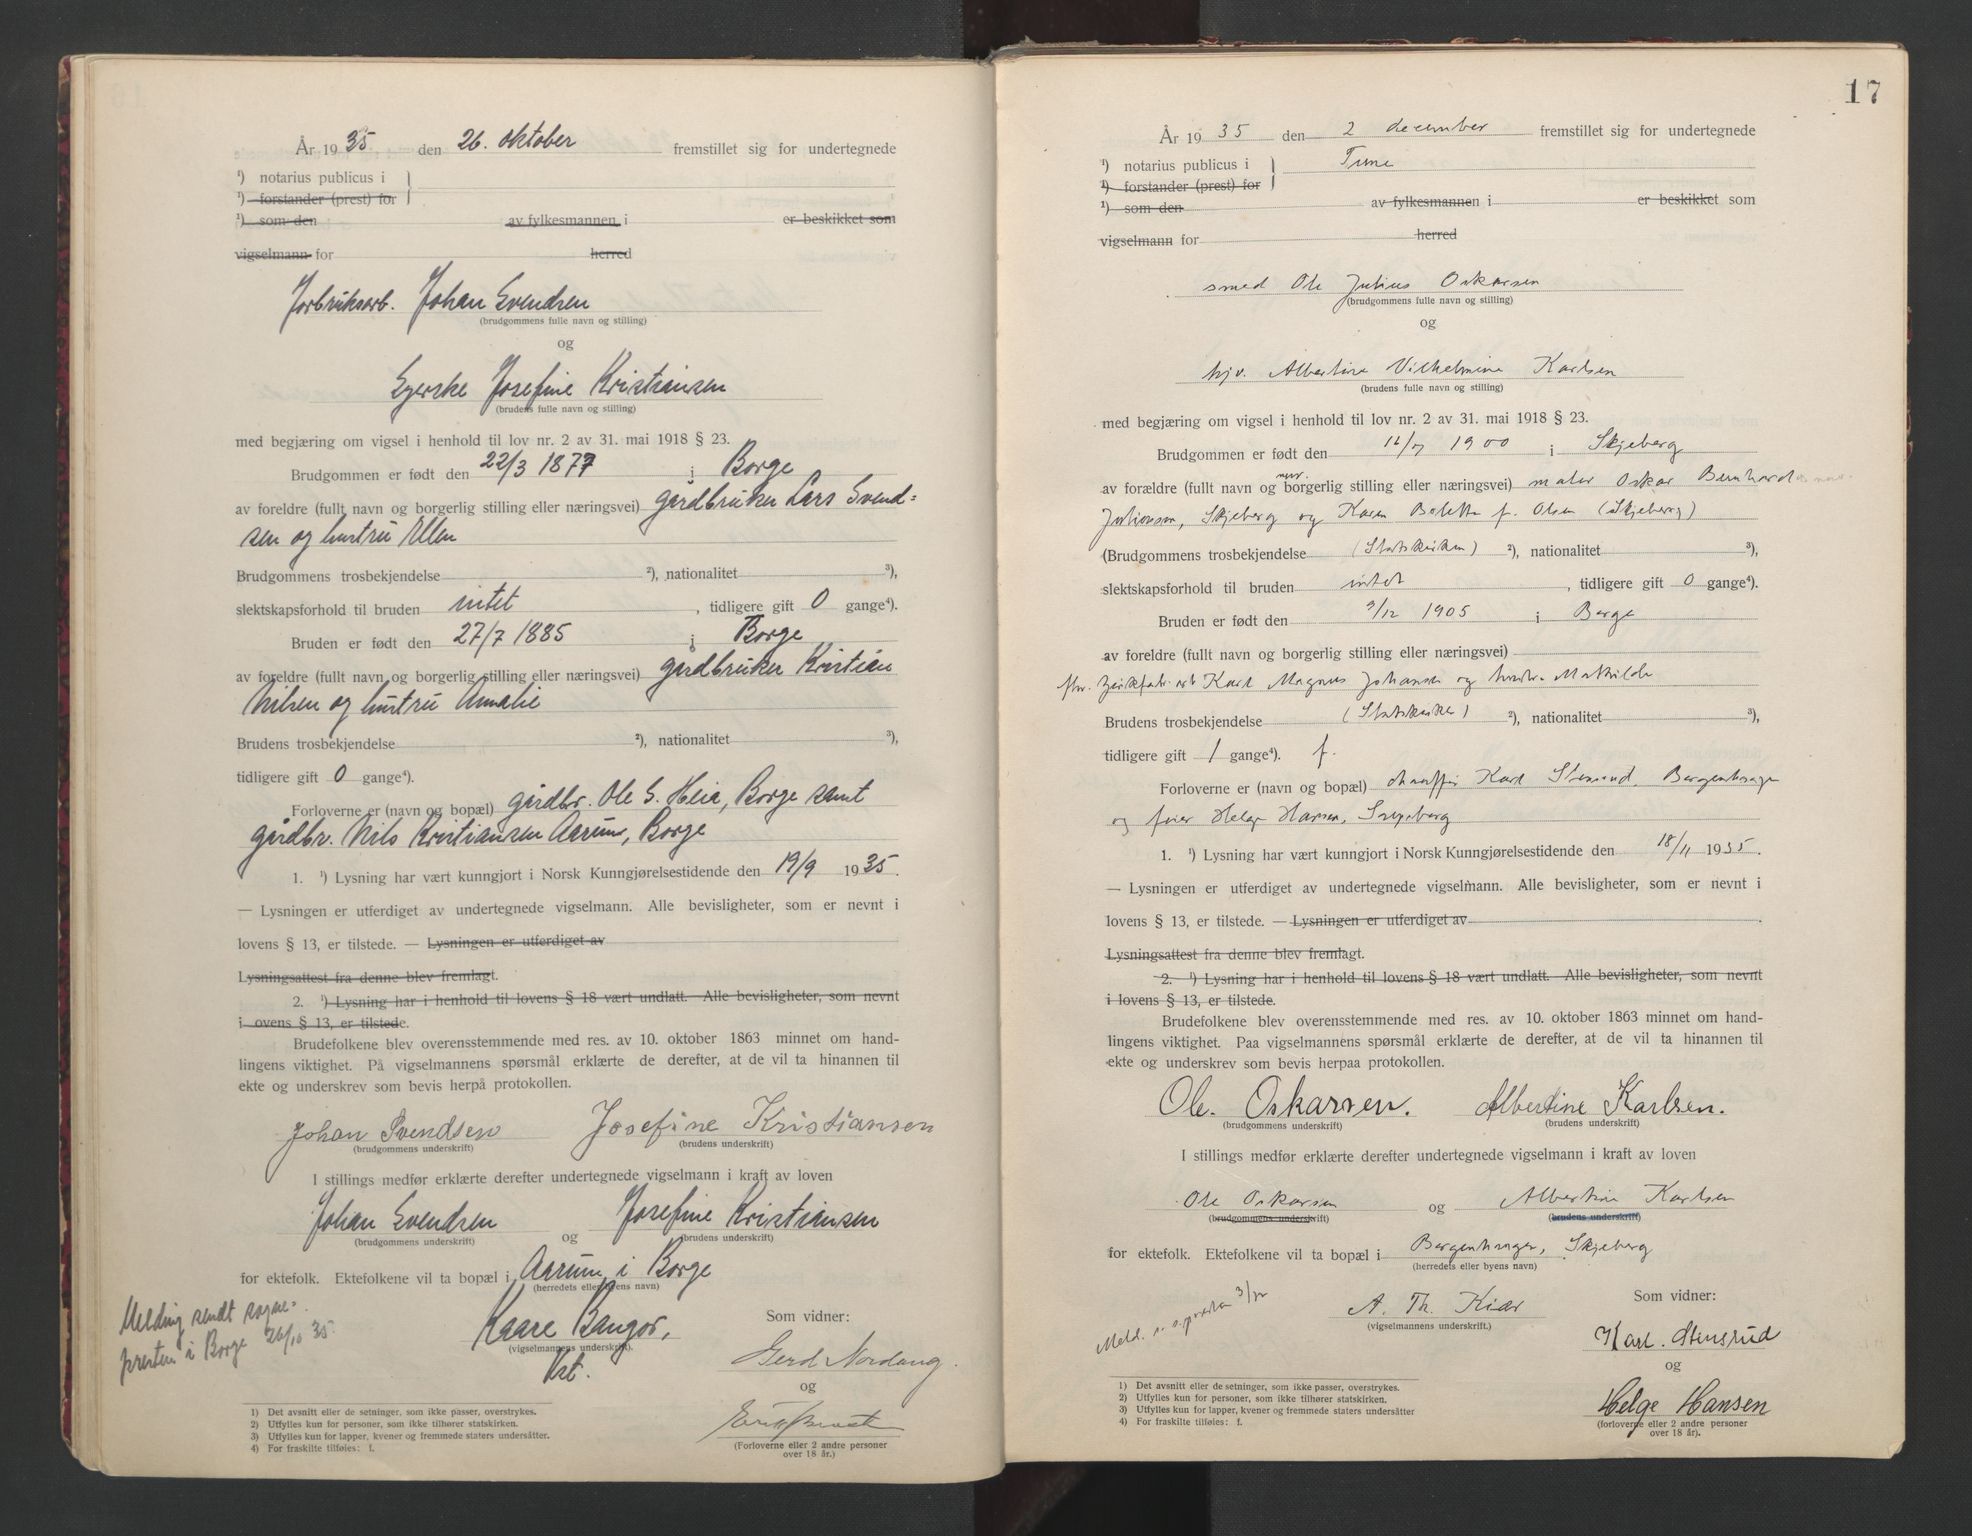 År 1935 den 26. oktober fremstillet sig for undertegnede
¹) notarius publicus i
¹) forstander (prest) for
¹) som den av fylkesmannen i er beskikket som
vigselmann for herred
Jorbruksarb. Johan Svendsen
(brudgommens fulle navn og stilling)
og
Syerske Josefine Kristiansen
(brudens fulle navn og stilling)
med begjæring om vigsel i henhold til lov nr. 2 av 31. mai 1918 § 23.
Brudgommen er født den 22/3 1877 i Borge
av foreldre (fullt navn og borgerlig stilling eller næringsvei) gårdbruker Lars Svend=
sen og hustru Ellen
Brudgommens trosbekjendelse ²), nationalitet ³),
slektskapsforhold til bruden intet, tidligere gift 0 gange⁴).
Bruden er født den 27/7 1885 i Borge
av foreldre (fullt navn og borgerlig stilling eller næringsvei) gårdbruker Kristian
Nilsen og hustru Annalie
Brudens trosbekjendelse ²), nationalitet ³),
tidligere gift 0 gange⁴).
Forloverne er (navn og bopæl) gårdbr. Ole S. Heia, Borge samt
gårdbr. Nils Kristiansen Aarum, Borge
1. ¹) Lysning har vært kunngjort i Norsk Kunngjørelsestidende den 19/9 1935.
— Lysningen er utferdiget av undertegnede vigselmann. Alle bevisligheter, som er nevnt i
lovens § 13, er tilstede. — Lysningen er utferdiget av
Lysningsattest fra denne blev fremlagt.
2. ¹) Lysning har i henhold til lovens § 18 vært undlatt. Alle bevisligheter, som nevnt
i ovens § 13, er tilstede.
Brudefolkene blev overensstemmende med res. av 10. oktober 1863 minnet om hand-
lingens viktighet. På vigselmannens spørsmål erklærte de derefter, at de vil ta hinannen til
ekte og underskrev som bevis herpå protokollen.
Johan Svendsen Josefine Kristiansen
(brudgommens underskrift) (brudens underskrift)
I stillings medfør erklærte derefter undertegnede vigselmann i kraft av loven
Johan Svendsen og Josefine Kristiansen
(brudgommens underskrift) (brudens underskrift)
for ektefolk. Ektefolkene vil ta bopæl i Aarum i Borge
(herredets eller byens navn)
Melding sendt sogne=
presten i Borge 26/10 35.
Kaare Bangor,
(vigselmannens underskrift).
Vst.
Som vidner:
Gerd Nordang.
og
(Forloverne eller 2 andre personer
over 18 år.)
1) Det avsnitt eller de setninger, som ikke passer, overstrykes.
2) Utfylles kun for personer, som ikke tilhører statskirken.
3) Utfylles kun for lapper, kvener og fremmede staters undersåtter.
4) For fraskilte tilføies: f.
17
År 1935 den 2 december fremstillet sig for undertegnede
¹) notarius publicus i Tune
¹) forstander (prest) for
¹) som den av fylkesmannen i er beskikket som
vigselmann for herred
smed Ole Julius Oskarsen
(brudgommens fulle navn og stilling)
og
hjv. Albertine Vilhelmine Karlsen
(brudens fulle navn og stilling)
med begjæring om vigsel i henhold til lov nr. 2 av 31. mai 1918 § 23.
Brudgommen er født den 1900 i Skjeberg
av forældre (fullt navn og borgerlig stilling eller næringsvei) maler Oskar Bernhard
Julionsen, Skjeberg og Karen Boletta f. Olsen (Skjeberg)
(Brudgommens trosbekjendelse (Statskirken) ²), nationalitet ³),
slektskapsforhold til bruden intet, tidligere gift 0 gange⁴).
Bruden er født den 9/12 1905 i Borge
av foreldre (fullt navn og borgerlig stilling eller næringsvei)
Karl Magnus Johansen og hustru Mathilde
Brudens trosbekjendelse (Statskirken) ²), nationalitet ³),
tidligere gift 1 gange⁴). f.
Forloverne er (navn og bopæl) chauffør Karl Stensrud, Borgenhaugen
og feier Helge Hansen, Skjeberg
1. ¹) Lysning har vært kunngjort i Norsk Kunngjørelsestidende den 18/11 1935.
— Lysningen er utferdiget av undertegnede vigselmann. Alle bevisligheter, som er nevnt i
lovens § 13, er tilstede. — Lysningen er utferdiget av
Lysningsattest fra denne blev fremlagt.
2. ¹) Lysning har i henhold til lovens § 18 vært undlatt. Alle bevisligheter, som nevnt
i lovens § 13, er tilstede.
Brudefolkene blev overensstemmende med res. av 10. oktober 1863 minnet om hand-
lingens viktighet. Paa vigselmannens spørsmål erklærte de derefter, at de vil ta hinannen til
ekte og underskrev som bevis herpaa protokollen.
Ole. Oskarsen. Albertine Karlsen.
(brudgommens underskrift) (brudens underskrift)
I stillings medfør erklærte derefter undertegnede vigselmann i kraft av loven
Ole Oskarsen og Albertine Karlsen
(brudgommens underskrift) (brudens underskrift)
for ektefolk. Ektefolkene vil ta bopæl i Borgenhaugen, Skjeberg
(herredets eller byens navn)
Meld. s. s.presten 3/12
A. Th. Kiær
(vigselmannens underskrift.)
Som vidner:
Karl. Stensrud
og
Helge Hansen
(forloverne eller 2 andre personer
over 18 år).
1) Det avsnitt eller de setninger, som ikke passer, overstrykes.
2) Utfylles kun for personer, som ikke tilhører statskirken.
3) Utfylles kun for lapper, kvener og fremmede staters undersåtter
4) For fraskilte tilføies: f.